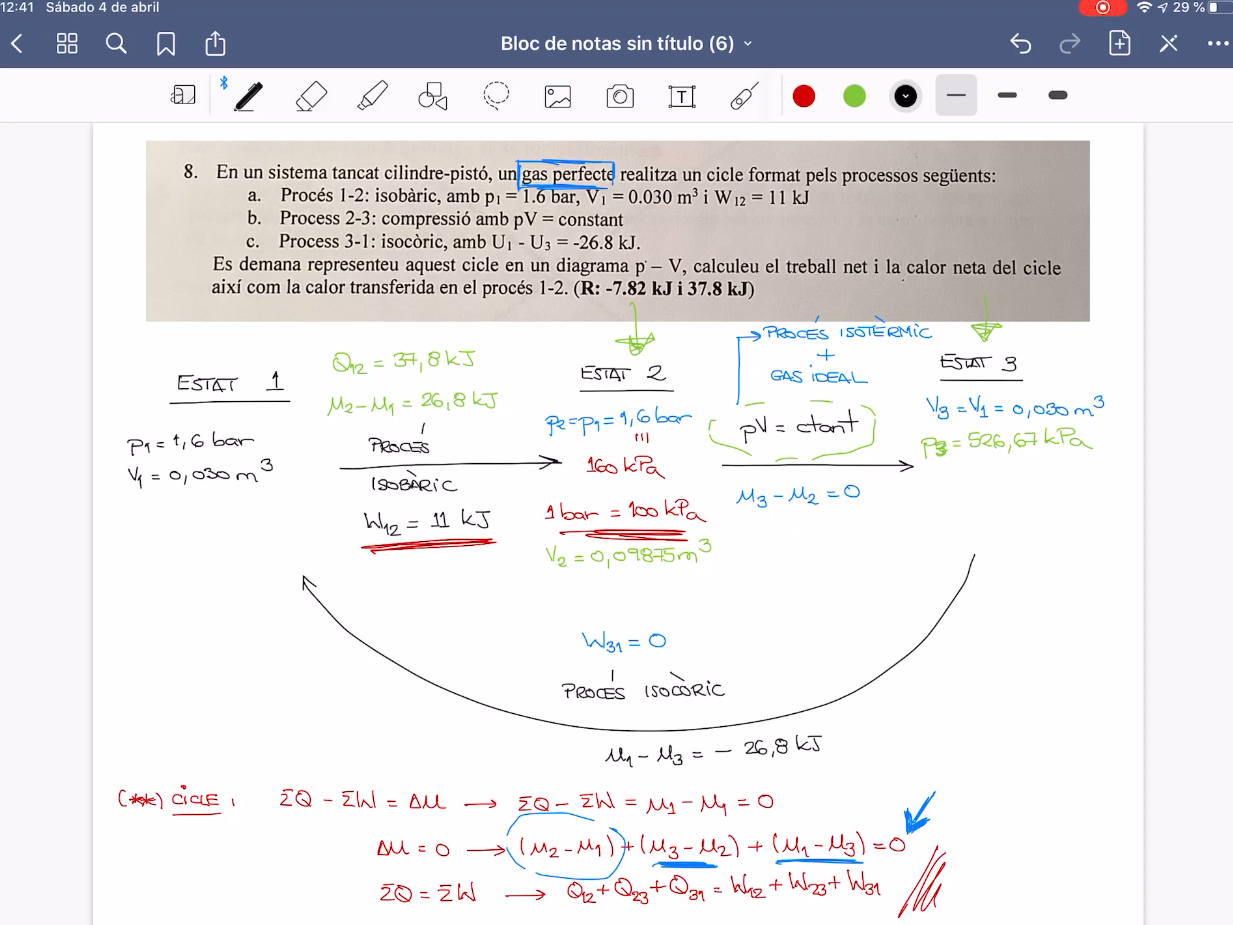 12:41 Sábado 4 de abril
29 %
Bloc de notas sin título (6)
8. En un sistema tancat cilindre-pistó, un gas perfecte realitza un cicle format pels processos següents:
a. Procés 1-2: isobàric, amb p₁ = 1.6 bar, V₁ = 0.030 m³ i W₁₂ = 11 kJ
b. Process 2-3: compressió amb pV = constant
c. Process 3-1: isocòric, amb U₁ - U₃ = -26.8 kJ.
Es demana representeu aquest cicle en un diagrama p – V, calculeu el treball net i la calor neta del cicle
així com la calor transferida en el procés 1-2. (R: -7.82 kJ i 37.8 kJ)
ESTAT 1
P₁ = 1,6 bar
V₁ = 0,030 m³
Q₁₂ = 37,8 kJ
U₂ – U₁ = 26,8 kJ
PROCÉS
ISOBÀRIC
W₁₂ = 11 kJ
ESTAT 2
P₂ = P₁ = 1,6 bar
160 kPa
1 bar = 100 kPa
V₂ = 0,09875 m³
PROCÉS ISOTÈRMIC
+
GAS IDEAL
pV = ctant
U₃ – U₂ = 0
ESTAT 3
V₃ = V₁ = 0,030 m³
P₃ = 526,67 kPa
W₃₁ = 0
PROCÉS ISOCÒRIC
U₁ – U₃ = – 26,8 kJ
(**) CICLE: ΣQ – ΣW = ΔU → ΣQ – ΣW = U₁ – U₁ = 0
ΔU = 0 → (U₂ – U₁) + (U₃ – U₂) + (U₁ – U₃) = 0
ΣQ = ΣW → Q₁₂ + Q₂₃ + Q₃₁ = W₁₂ + W₂₃ + W₃₁